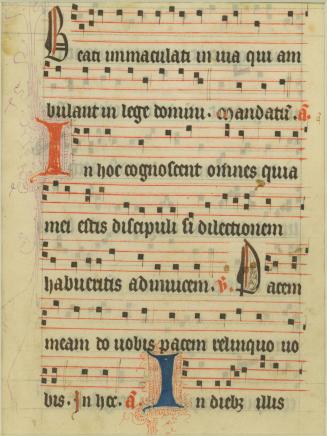 Beati immaculati in uia qui am
bulant in lege domini. Mandatũ. a.
In hoc cognoscent omnes quia
mei estis discipuli si dilectionem
habueritis adinuicem. Pacem
meam do uobis pacem relinquo uo
bis. In hoc. a. In diebꝫ illis